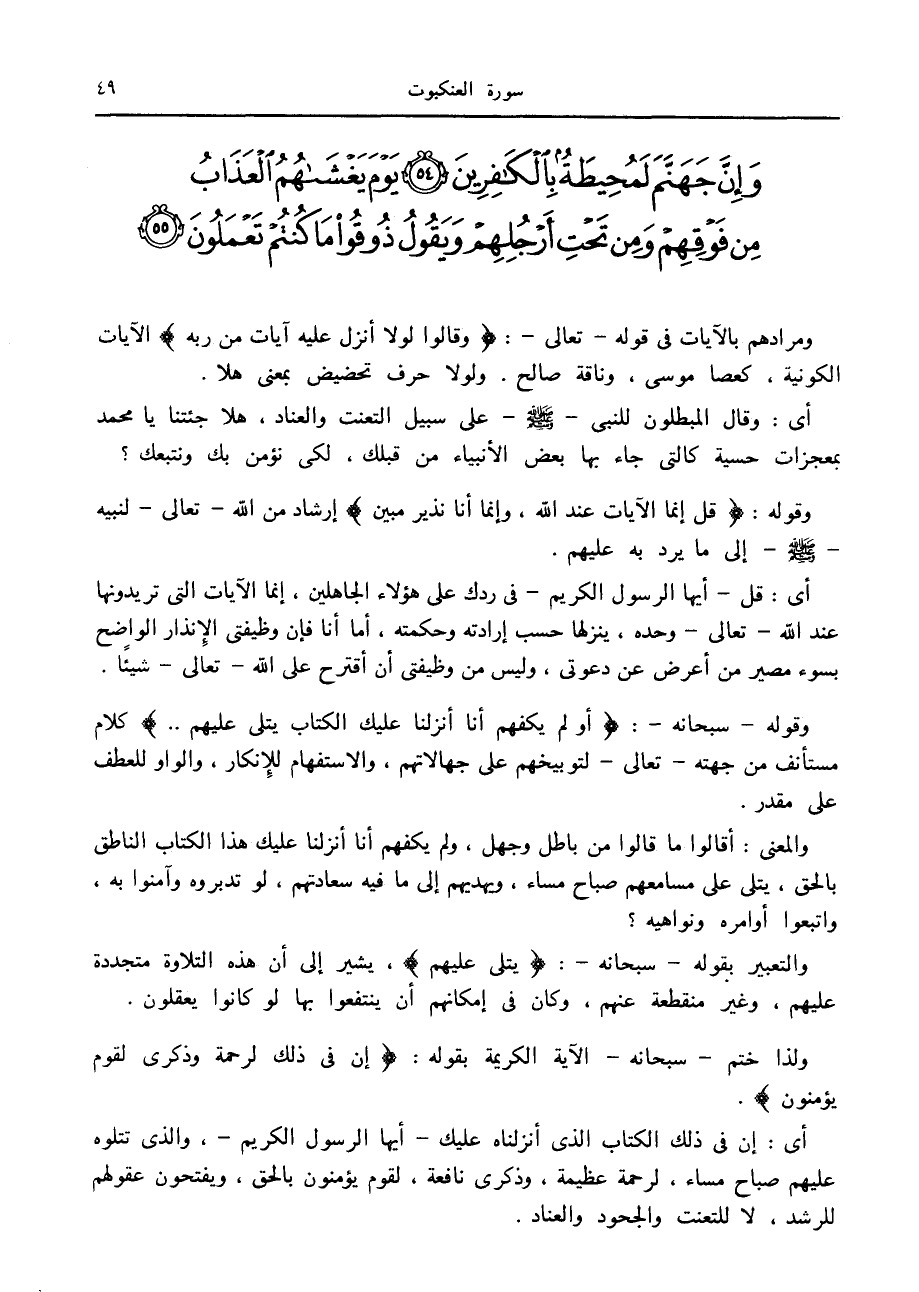 سورة العنكبوت ٤٩
وَإِنَّ جَهَنَّمَ لَمُحِيطَةٌۢ بِٱلۡكَٰفِرِينَ ٥٤ يَوۡمَ يَغۡشَىٰهُمُ ٱلۡعَذَابُ
مِن فَوۡقِهِمۡ وَمِن تَحۡتِ أَرۡجُلِهِمۡ وَيَقُولُ ذُوقُواْ مَا كُنتُمۡ تَعۡمَلُونَ ٥٥
ومرادهم بالآيات فى قوله - تعالى - : ﴿ وقالوا لولا أنزل عليه آيات من ربه ﴾ الآيات
الكونية ، كعصا موسى ، وناقة صالح . ولولا حرف تحضيض بمعنى هلا .
أى : وقال المبطلون للنبى - ﷺ - على سبيل التعنت والعناد ، هلا جئتنا يا محمد
بمعجزات حسية كالتى جاء بها بعض الأنبياء من قبلك ، لكى نؤمن بك ونتبعك ؟
وقوله : ﴿ قل إنما الآيات عند الله ، وإنما أنا نذير مبين ﴾ إرشاد من الله - تعالى - لنبيه
- ﷺ - إلى ما يرد به عليهم .
أى : قل - أيها الرسول الكريم - فى ردك على هؤلاء الجاهلين ، إنما الآيات التى تريدونها
عند الله - تعالى - وحده ، ينزلها حسب إرادته وحكمته ، أما أنا فإن وظيفتى الإنذار الواضح
بسوء مصير من أعرض عن دعوتى ، وليس من وظيفتى أن أقترح على الله - تعالى - شيئًا .
وقوله - سبحانه - : ﴿ أو لم يكفهم أنا أنزلنا عليك الكتاب يتلى عليهم .. ﴾ كلام
مستأنف من جهته - تعالى - لتوبيخهم على جهالاتهم ، والاستفهام للإنكار ، والواو للعطف
على مقدر .
والمعنى : أقالوا ما قالوا من باطل وجهل ، ولم يكفهم أنا أنزلنا عليك هذا الكتاب الناطق
بالحق ، يتلى على مسامعهم صباح مساء ، ويهديهم إلى ما فيه سعادتهم ، لو تدبروه وآمنوا به ،
واتبعوا أوامره ونواهيه ؟
والتعبير بقوله - سبحانه - : ﴿ يتلى عليهم ﴾ ، يشير إلى أن هذه التلاوة متجددة
عليهم ، وغير منقطعة عنهم ، وكان فى إمكانهم أن ينتفعوا بها لو كانوا يعقلون .
ولذا ختم - سبحانه - الآية الكريمة بقوله : ﴿ إن فى ذلك لرحمة وذكرى لقوم
يؤمنون ﴾ .
أى : إن فى ذلك الكتاب الذى أنزلناه عليك - أيها الرسول الكريم - ، والذى تتلوه
عليهم صباح مساء ، لرحمة عظيمة ، وذكرى نافعة ، لقوم يؤمنون بالحق ، ويفتحون عقولهم
للرشد ، لا للتعنت والجحود والعناد .